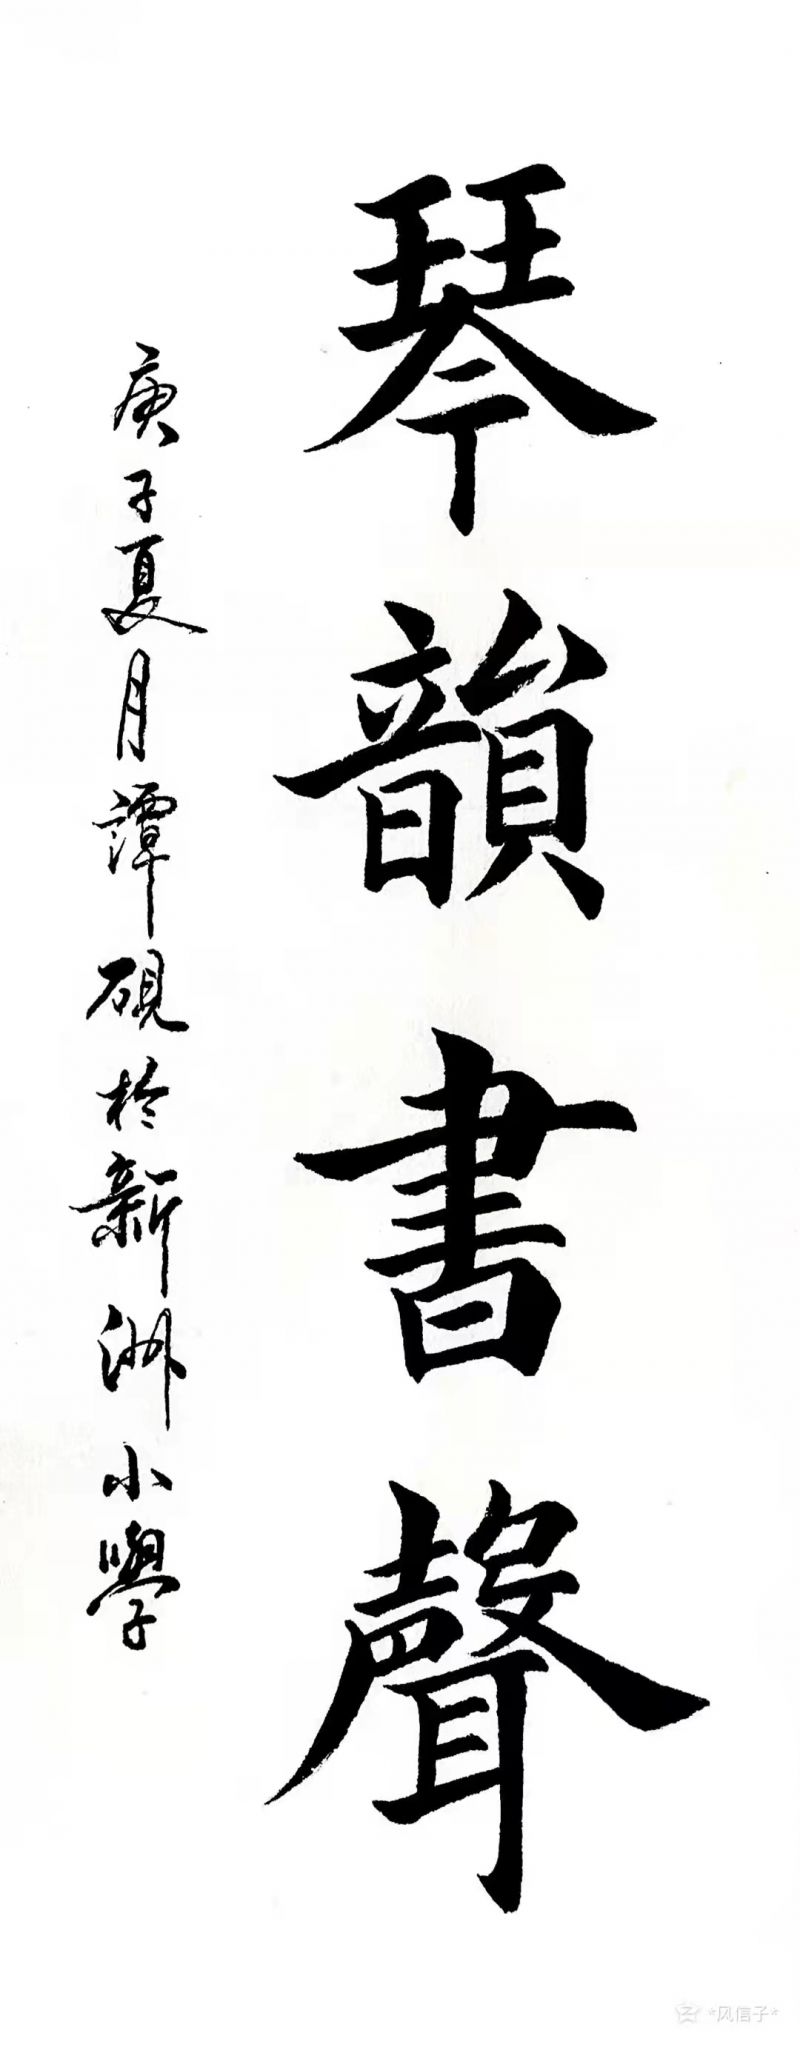 琴韻書聲
庚子夏月譚硯於新洲小學
*风信子*